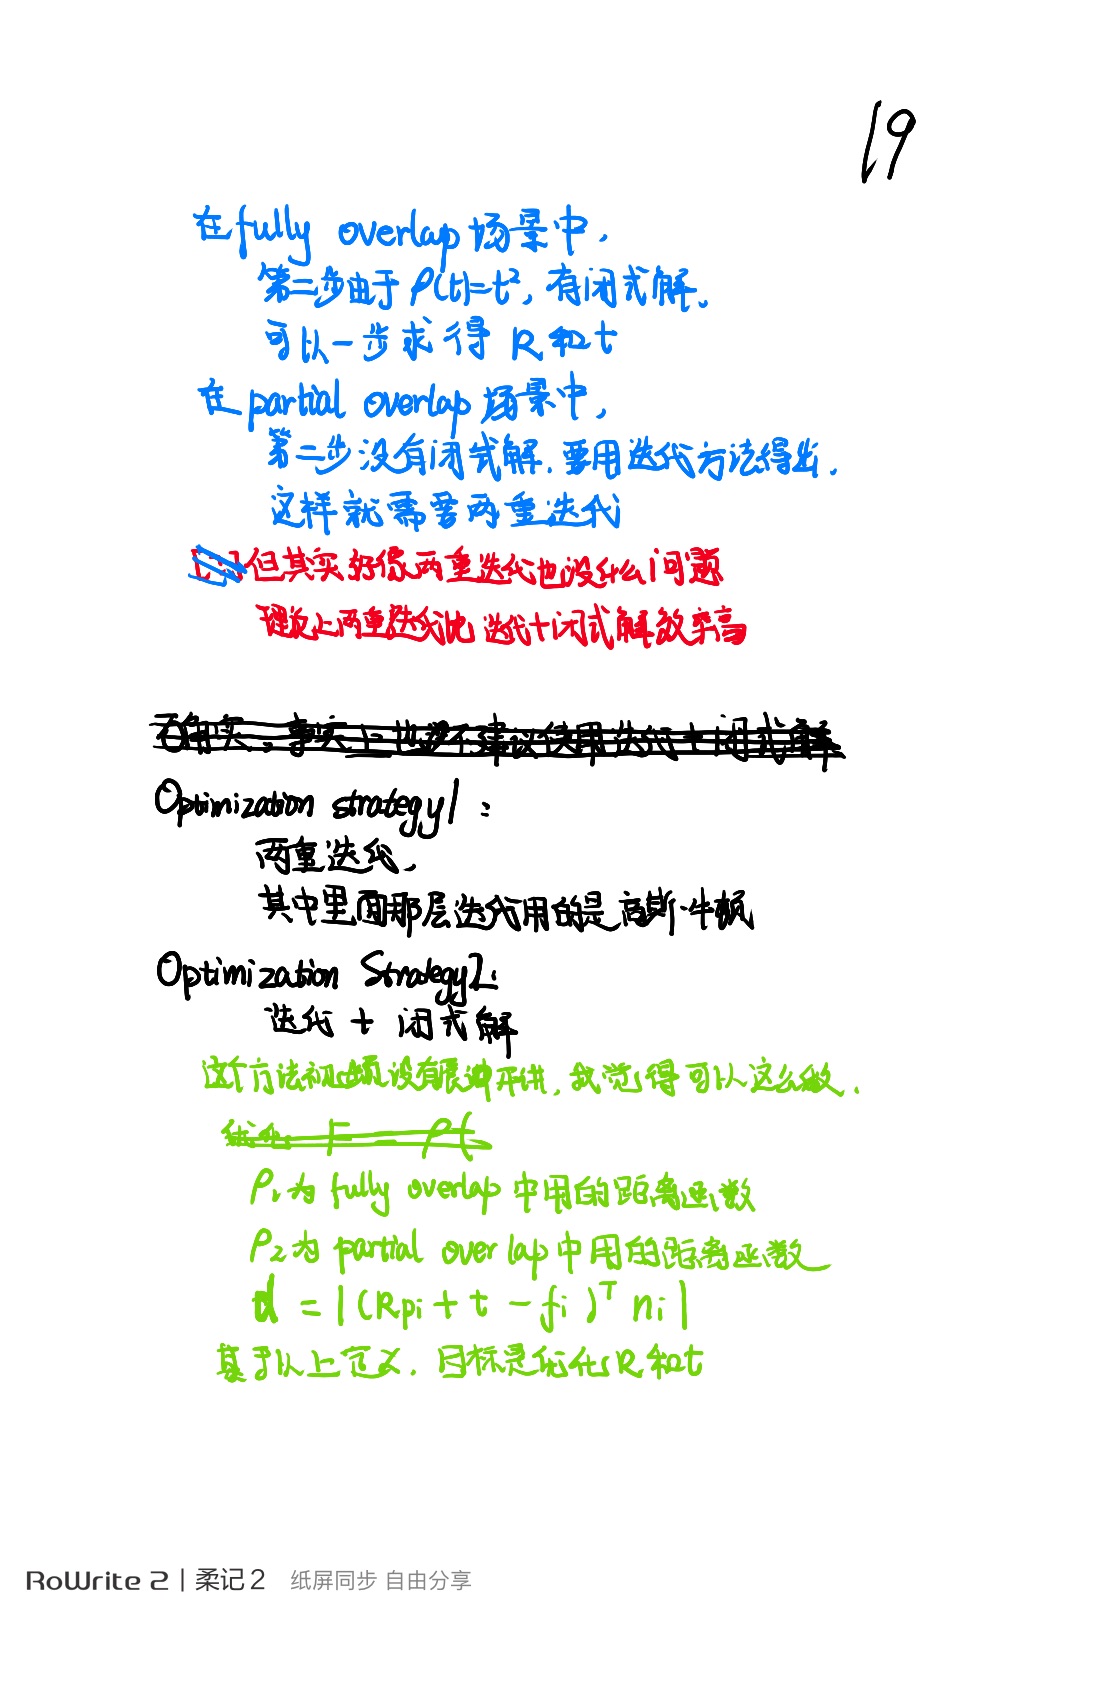 19
在fully overlap场景中，
第二步由于ρ(t)=t²，有闭式解，
可以一步求得 R和t
在partial overlap场景中，
第二步没有闭式解，要用迭代方法得出，
这样就需要两重迭代
但其实好像两重迭代也没什么问题
理论上两重迭代比迭代+闭式解效率高
确实，事实上也没不建议使用迭代+闭式解
Optimization strategy1：
两重迭代，
其中里面那层迭代用的是高斯牛顿
Optimization Strategy2：
迭代 + 闭式解
这个方法没有展开讲，我觉得可以这么做.
F = ρ(
ρ₁为 fully overlap 中用的距离函数
ρ₂为 partial overlap中用的距离函数
d = |(Rpi + t - fi)ᵀ ni|
基于以上定义，目标是优化R和t
RoWrite 2 | 柔记 2 纸屏同步 自由分享